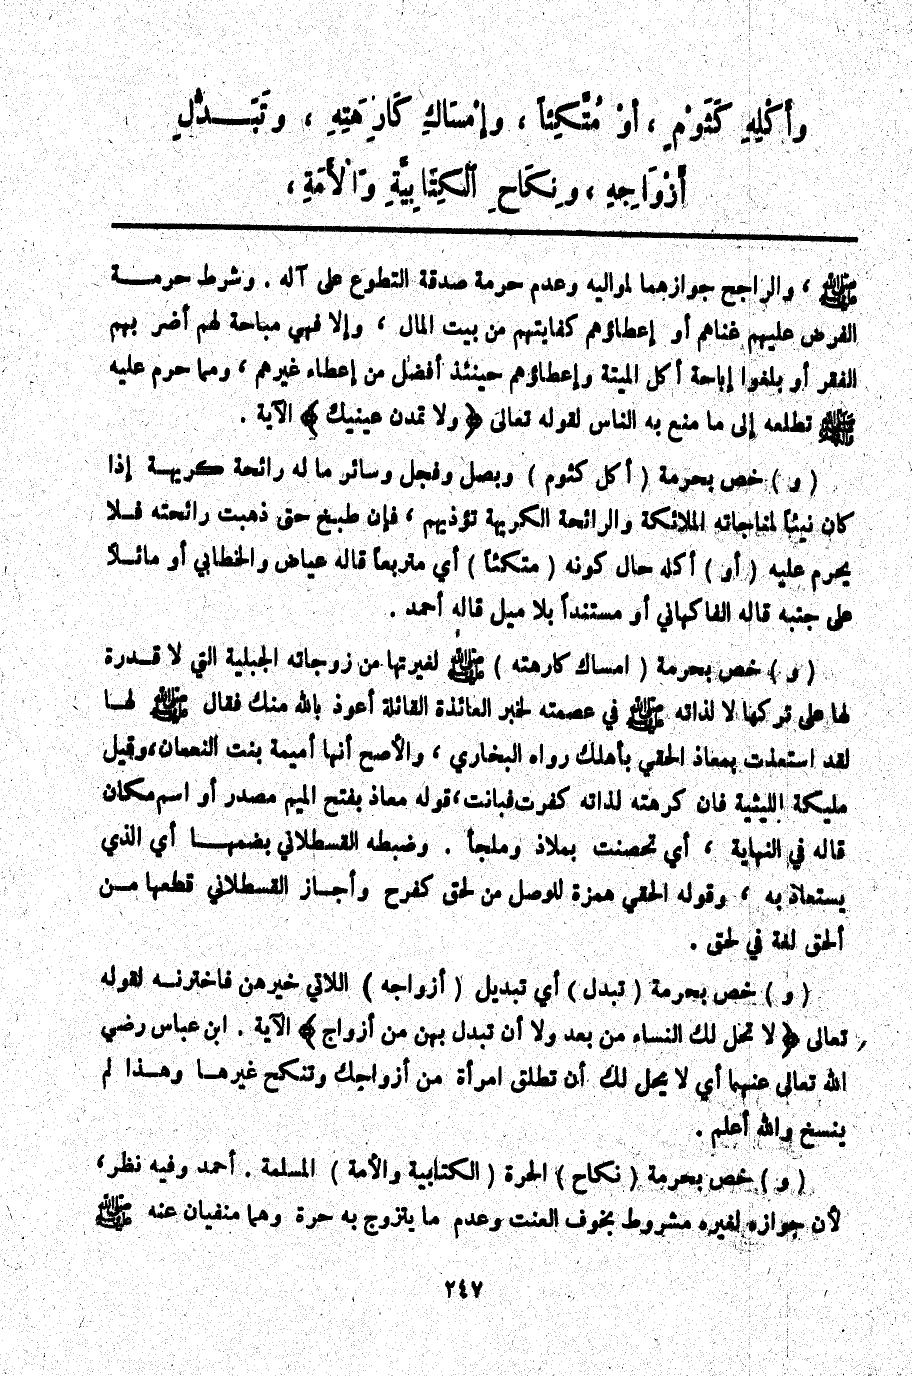 وأَكْلِهِ كَثَوْمٍ ، أَوْ مُتَّكِئاً ، وإِمْسَاكِ كَارِهَتِهِ ، وتَبَـــدُّلِ
أَزْوَاجِهِ ، ونِكَاحِ ٱلْكِتَابِيَّةِ وَالْأَمَةِ ،
ﷺ ، والراجح جوازهما لمواليه وعدم حرمة صدقة التطوع على آله . وشرط حرمــة
الفرض عليهم غناهم أو إعطاؤهم كفايتهم من بيت المال ، وإلا فهي مباحة لهم أضر بهم
الفقر أو بلغوا إباحة أكل الميتة وإعطاؤهم حينئذ أفضل من إعطاء غيرهم ، ومما حرم عليه
ﷺ تطلعه إلى ما منع به الناس لقوله تعالى ﴿ ولا تمدن عينيك ﴾ الآية .
( و ) خص بحرمة ( أكل كثوم ) وبصل وفجل وسائر ما له رائحة كريهــة إذا
كان نيئاً لمناجاته الملائكة والرائحة الكريهة تؤذيهم ، فإن طبخ حتى ذهبت رائحته فــلا
يحرم عليه ( أو ) أكله حال كونه ( متكئاً ) أي متربعاً قاله عياض والخطابي أو مائــلاً
على جنبه قاله الفاكهاني أو مستنداً بلا ميل قاله أحمد .
( و ) خص بحرمة ( امساك كارهته ) ﷺ لغيرتها من زوجاته الجبلية التي لا قــدرة
لها على تركها لا لذاته ﷺ في عصمته لخبر العائذة القائلة أعوذ بالله منك فقال ﷺ لهــا
لقد استعذت بمعاذ الحقي بأهلك رواه البخاري ، والأصح أنها أميمة بنت النعمان،وقيل
مليكة الليثية فان كرهته لذاته كفرت فبانت،قوله معاذ بفتح الميم مصدر أو اسم مكان
قاله في النهاية ، أي تحصنت بملاذ وملجأ . وضبطه القسطلاني بضمهـــا أي الذي
يستعاذ به ، وقوله الحقي همزة للوصل من لحق كفرح وأجــاز القسطلاني قطعها مــن
ألحق لغة في لحق .
( و ) خص بحرمة ( تبدل ) أي تبديل ( أزواجه ) اللاتي خيرهن فاخترنــه لقوله
تعالى ﴿ لا تحل لك النساء من بعد ولا أن تبدل بهن من أزواج ﴾ الآية . ابن عباس رضي
الله تعالى عنهما أي لا يحل لك أن تطلق امرأة من أزواجك وتنكح غيرهــا وهــذا لم
ينسخ والله أعلم .
( و ) خص بحرمة ( نكاح ) الحرة ( الكتابية والأمة ) المسلمة . أحمد وفيه نظر،
لأن جوازه لغيره مشروط بخوف العنت وعدم ما يتزوج به حرة وهما منفيان عنه ﷺ
٢٤٧